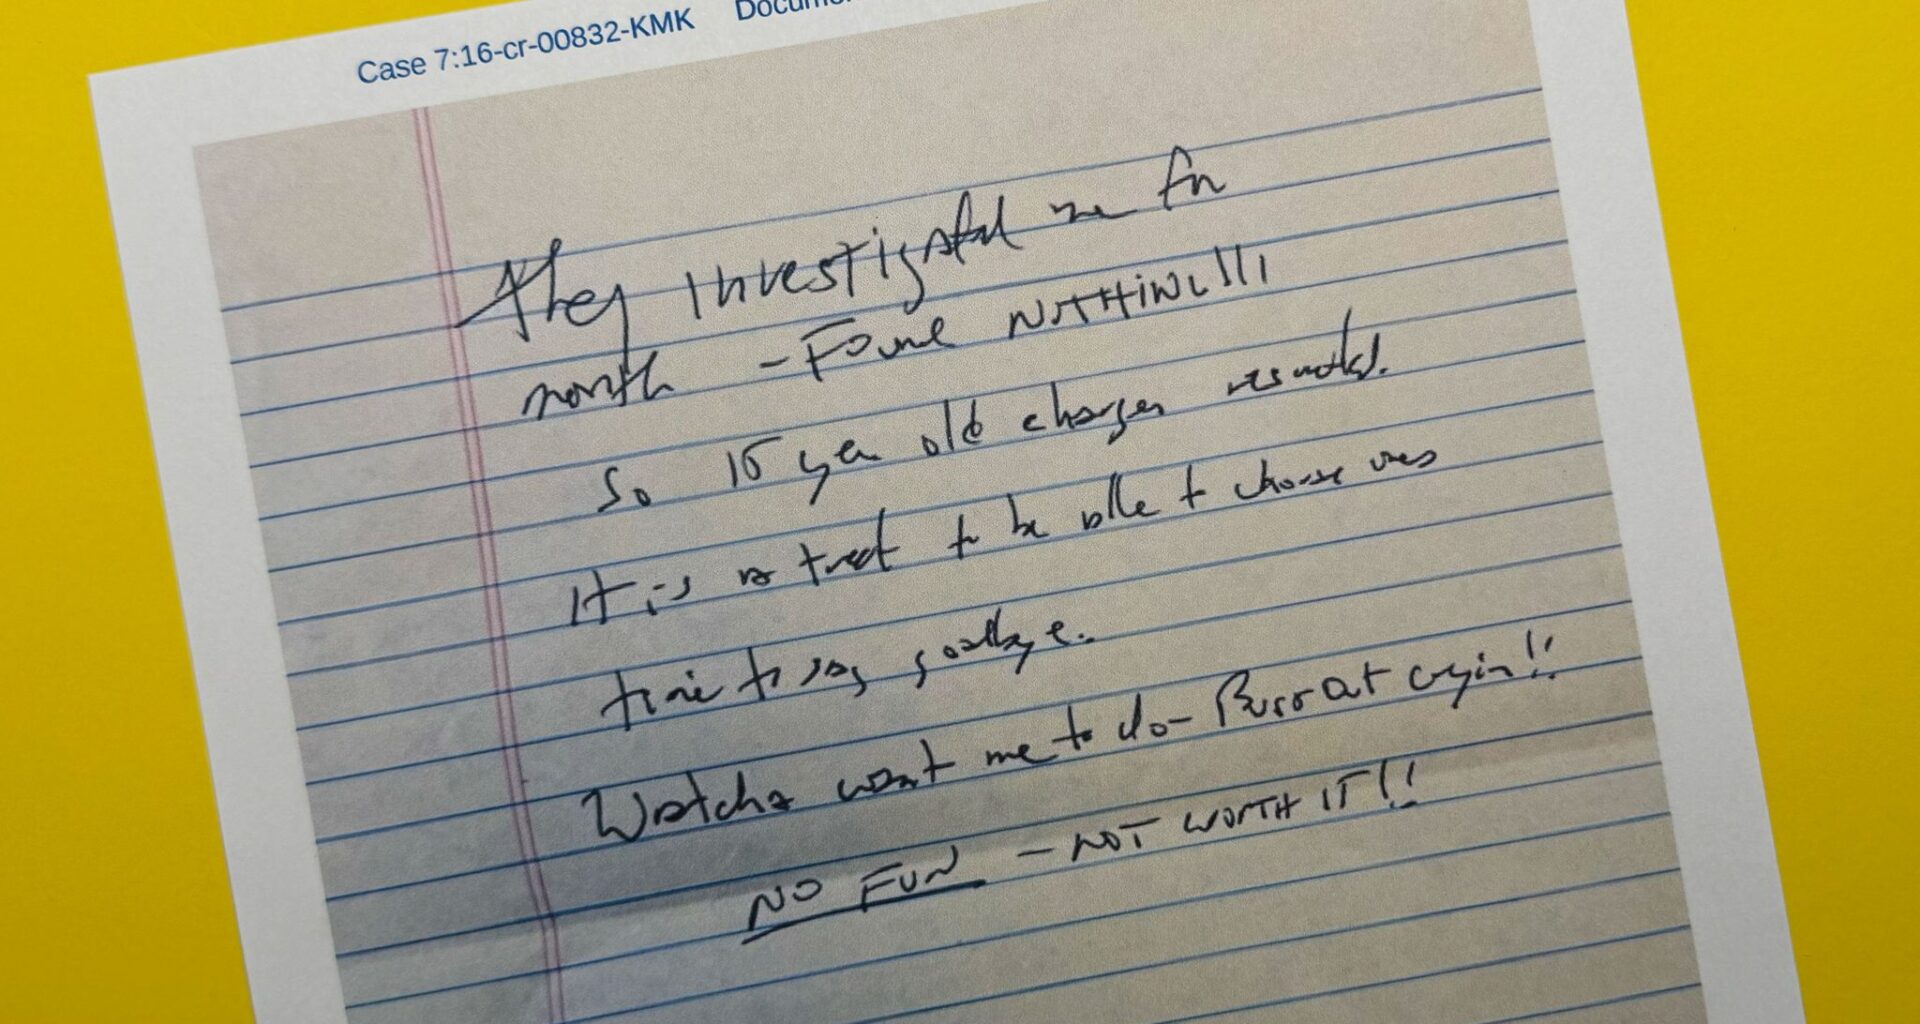 Case 7:16-cr-00832-KMK Docume
they investigated me for
month - Found NOTHING!!!
So 15 year old charges
It is a treat to be able to choose ones
time to say goodbye.
Watcha want me to do - Burst out cryin!!
NO FUN - NOT WORTH IT!!